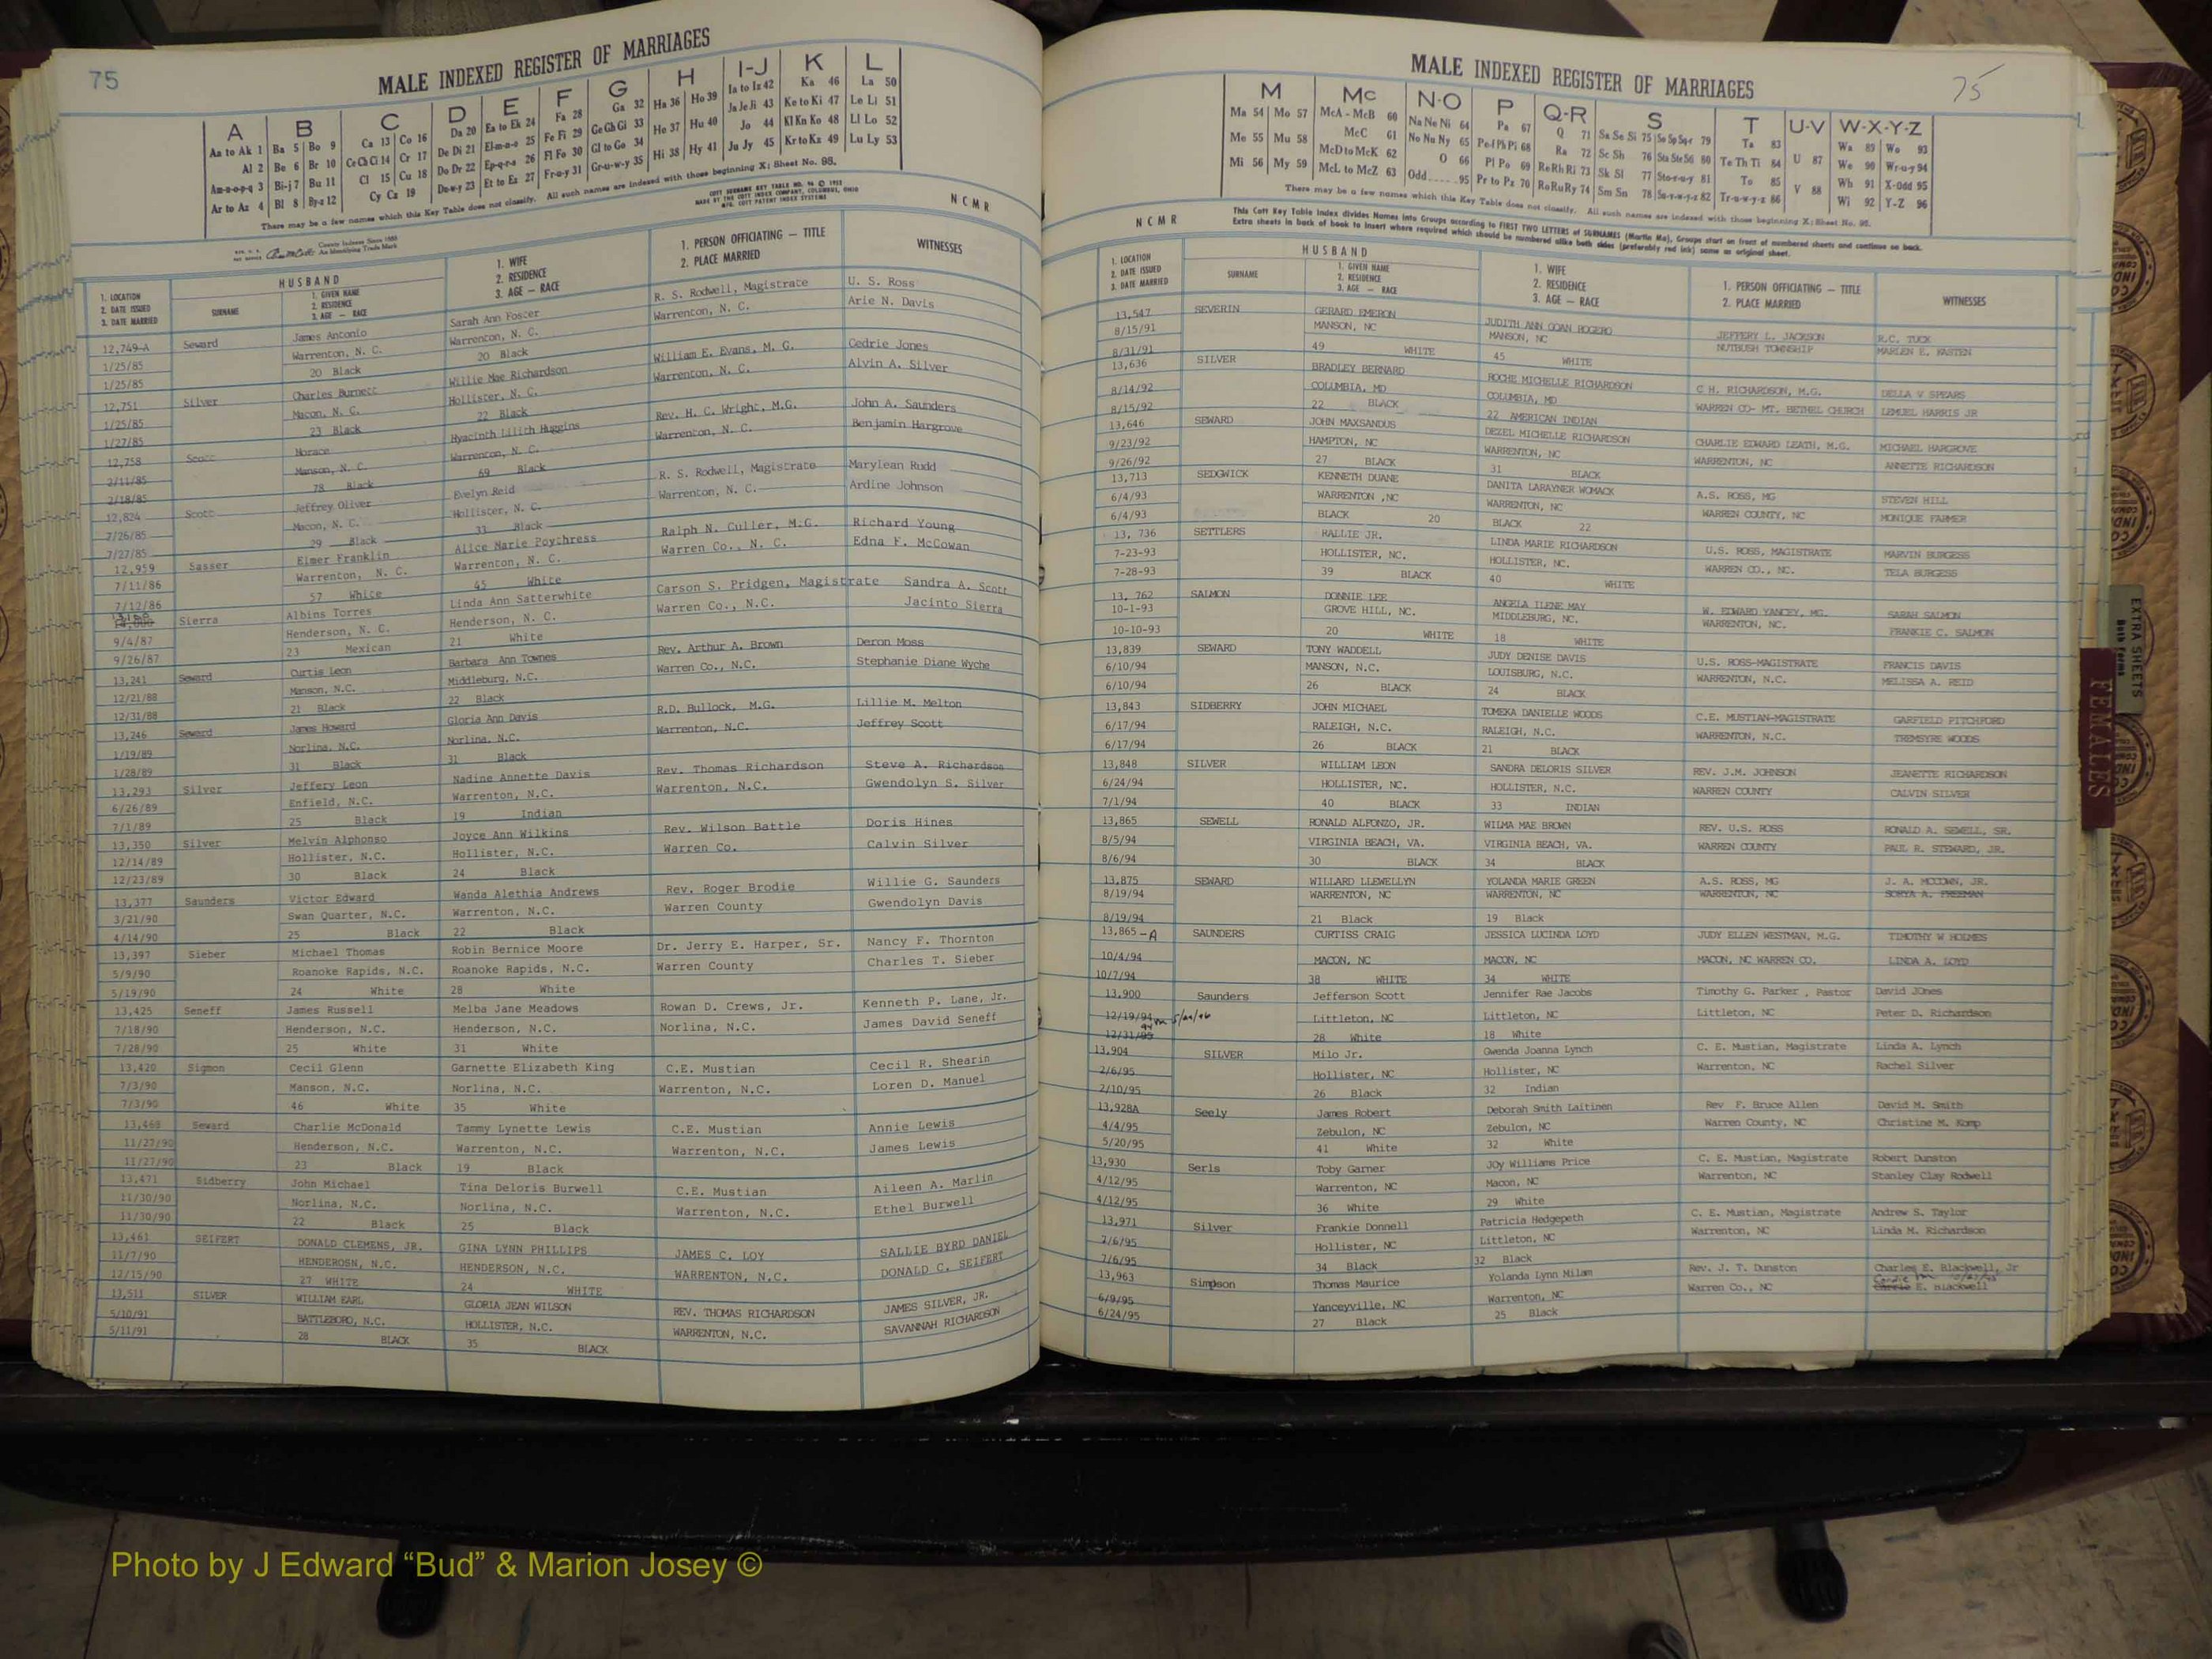 75
MALE INDEXED REGISTER OF MARRIAGES
A B C D E F G H I-J K L
Aa to Ak 1 Ba 5 Bo 9 Ca 13 Co 16 Da 20 Ea to Ek 24 Fa 28 Ga 32 Ha 36 Ho 39 Ia to Iz 42 Ka 46 La 50
Al 2 Be 6 Br 10 Ce Ch Ci 14 Cr 17 De Di 21 El-m-n-o 25 Fe Fi 29 Ge Gh Gi 33 He 37 Hu 40 Ja Je Ji 43 Ke to Ki 47 Le Li 51
Am-n-o-p-q 3 Bi-j 7 Bu 11 Cl 15 Cu 18 Do Dr 22 Ep-q-r-s 26 Fl Fo 30 Gl to Go 34 Hi 38 Hy 41 Jo 44 Kl Kn Ko 48 Ll Lo 52
Ar to Az 4 Bl 8 By-z 12 Cy Cz 19 Du-w-y 23 Et to Ez 27 Fr-u-y 31 Gr-u-w-y 35 Ju Jy 45 Kr to Kz 49 Lu Ly 53
There may be a few names which this Key Table does not classify. All such names are indexed with those beginning X; Sheet No. 95.
COTT SURNAME KEY TABLE NO. 96 © 1952
MADE BY THE COTT INDEX COMPANY, COLUMBUS, OHIO
MFG. COTT PATENT INDEX SYSTEMS
NCMR
County Indexes Since 1888
An Identifying Trade Mark
1. LOCATION
2. DATE ISSUED
3. DATE MARRIED
HUSBAND
SURNAME
1. GIVEN NAME
2. RESIDENCE
3. AGE — RACE
1. WIFE
2. RESIDENCE
3. AGE — RACE
1. PERSON OFFICIATING — TITLE
2. PLACE MARRIED
WITNESSES
12,749-A Seward James Antonio Sarah Ann Foster R. S. Rodwell, Magistrate U. S. Ross
1/25/85 Warrenton, N. C. Warrenton, N. C. Warrenton, N. C. Arie N. Davis
1/25/85 20 Black 20 Black
12,751 Silver Charles Burnett Willie Mae Richardson William E. Evans, M. G. Cedrie Jones
1/25/85 Macon, N. C. Hollister, N. C. Warrenton, N. C. Alvin A. Silver
1/27/85 23 Black 22 Black
12,758 Scott Horace Hyacinth Lilith Huggins Rev. H. C. Wright, M.G. John A. Saunders
2/11/85 Manson, N. C. Warrenton, N. C. Warrenton, N. C. Benjamin Hargrove
2/18/85 78 Black 69 Black
12,824 Scott Jeffrey Oliver Evelyn Reid R. S. Rodwell, Magistrate Marylean Rudd
7/26/85 Macon, N. C. Hollister, N. C. Warrenton, N. C. Ardine Johnson
7/27/85 29 Black 33 Black
12,959 Sasser Elmer Franklin Alice Marie Poychress Ralph N. Culler, M.G. Richard Young
7/11/86 Warrenton, N. C. Warrenton, N. C. Warren Co., N. C. Edna F. McCowan
7/12/86 57 White 45 White
Sierra Albins Torres Linda Ann Satterwhite Carson S. Pridgen, Magistrate Sandra A. Scott
9/4/87 Henderson, N. C. Henderson, N. C. Warren Co., N.C. Jacinto Sierra
9/26/87 23 Mexican 21 White
13,241 Seward Curtis Leon Barbara Ann Townes Rev. Arthur A. Brown Deron Moss
12/21/88 Manson, N.C. Middleburg, N.C. Warren Co., N.C. Stephanie Diane Wyche
12/31/88 21 Black 22 Black
13,246 Seward James Howard Gloria Ann Davis R.D. Bullock, M.G. Lillie M. Melton
1/19/89 Norlina, N.C. Norlina, N.C. Warrenton, N.C. Jeffrey Scott
1/28/89 31 Black 31 Black
13,293 Silver Jeffery Leon Nadine Annette Davis Rev. Thomas Richardson Steve A. Richardson
6/26/89 Enfield, N.C. Warrenton, N.C. Warrenton, N.C. Gwendolyn S. Silver
7/1/89 25 Black 19 Indian
13,350 Silver Melvin Alphonso Joyce Ann Wilkins Rev. Wilson Battle Doris Hines
12/14/89 Hollister, N.C. Hollister, N.C. Warren Co. Calvin Silver
12/23/89 30 Black 24 Black
13,377 Saunders Victor Edward Wanda Alethia Andrews Rev. Roger Brodie Willie G. Saunders
3/21/90 Swan Quarter, N.C. Warrenton, N.C. Warren County Gwendolyn Davis
4/14/90 25 Black 22 Black
13,397 Sieber Michael Thomas Robin Bernice Moore Dr. Jerry E. Harper, Sr. Nancy F. Thornton
5/9/90 Roanoke Rapids, N.C. Roanoke Rapids, N.C. Warren County Charles T. Sieber
5/19/90 24 White 28 White
13,425 Seneff James Russell Melba Jane Meadows Rowan D. Crews, Jr. Kenneth P. Lane, Jr.
7/18/90 Henderson, N.C. Henderson, N.C. Norlina, N.C. James David Seneff
7/28/90 25 White 31 White
13,420 Sigmon Cecil Glenn Garnette Elizabeth King C.E. Mustian Cecil R. Shearin
7/3/90 Manson, N.C. Norlina, N.C. Warrenton, N.C. Loren D. Manuel
7/3/90 46 White 35 White
13,468 Seward Charlie McDonald Tammy Lynette Lewis C.E. Mustian Annie Lewis
11/27/90 Henderson, N.C. Warrenton, N.C. Warrenton, N.C. James Lewis
11/27/90 23 Black 19 Black
13,471 Sidberry John Michael Tina Deloris Burwell C.E. Mustian Aileen A. Marlin
11/30/90 Norlina, N.C. Norlina, N.C. Warrenton, N.C. Ethel Burwell
11/30/90 22 Black 25 Black
13,461 SEIFERT DONALD CLEMENS, JR. GINA LYNN PHILLIPS JAMES C. LOY SALLIE BYRD DANIEL
11/7/90 HENDEROSN, N.C. HENDERSON, N.C. WARRENTON, N.C. DONALD C. SEIFERT
12/15/90 27 WHITE 24 WHITE
13,511 SILVER WILLIAM EARL GLORIA JEAN WILSON REV. THOMAS RICHARDSON JAMES SILVER, JR.
5/10/91 BATTLEBORO, N.C. HOLLISTER, N.C. WARRENTON, N.C. SAVANNAH RICHARDSON
5/11/91 28 BLACK 35 BLACK
MALE INDEXED REGISTER OF MARRIAGES
75
M Mc N-O P Q-R S T U-V W-X-Y-Z
Ma 54 Mo 57 McA - McB 60 Na Ne Ni 64 Pa 67 Q 71 Sa Se Si 75 So Sp Sq-r 79 Ta 83 Wa 89 Wo 93
Me 55 Mu 58 McC 61 No Nu Ny 65 Pe-f Ph Pi 68 Ra 72 Sc Sh 76 Sta Ste Sti 80 Te Th Ti 84 U 87 We 90 Wr-u-y 94
Mi 56 My 59 McD to McK 62 O 66 Pl Po 69 Re Rh Ri 73 Sk Sl 77 Sto-r-u-y 81 To 85 V 88 Wh 91 X-Odd 95
McL to McZ 63 Odd 95 Pr to Pz 70 Ro Ru Ry 74 Sm Sn 78 Su-v-w-y-z 82 Tr-u-w-y-z 86 Wi 92 Y-Z 96
There may be a few names which this Key Table does not classify. All such names are indexed with those beginning X; Sheet No. 95.
NCMR
This Cott Key Table Index divides Names into Groups according to FIRST TWO LETTERS of SURNAMES (Martin Ma), Groups start on front of numbered sheets and continue on back.
Extra sheets in back of book to insert where required which should be numbered alike both sides (preferably red ink) same as original sheet.
1. LOCATION
2. DATE ISSUED
3. DATE MARRIED
HUSBAND
SURNAME
1. GIVEN NAME
2. RESIDENCE
3. AGE — RACE
1. WIFE
2. RESIDENCE
3. AGE — RACE
1. PERSON OFFICIATING — TITLE
2. PLACE MARRIED
WITNESSES
13,547 SEVERIN GERARD EMERON JUDITH ANN JEFFERY L. JACKSON R.C. TUCK
8/15/91 MANSON, NC MANSON, NC NUTBUSH TOWNSHIP MARLEN E. KASTEN
8/31/91 49 WHITE 45 WHITE
13,636 SILVER BRADLEY BERNARD ROCHE MICHELLE RICHARDSON C H. RICHARDSON, M.G. DELLA V SPEARS
8/14/92 COLUMBIA, MD COLUMBIA, MD WARREN CO- MT. BETHEL CHURCH LEMUEL HARRIS JR
8/15/92 22 BLACK 22 AMERICAN INDIAN
13,646 SEWARD JOHN MAXSANDUS DEZEL MICHELLE RICHARDSON CHARLIE EDWARD LEATH, M.G. MICHAEL HARGROVE
9/23/92 HAMPTON, NC WARRENTON, NC WARRENTON, NC ANNETTE RICHARDSON
9/26/92 27 BLACK 31 BLACK
13,713 SEDGWICK KENNETH DUANE DANITA LARAYNER WOMACK A.S. ROSS, MG STEVEN HILL
6/4/93 WARRENTON ,NC WARRENTON, NC WARREN COUNTY, NC MONIQUE FARMER
6/4/93 BLACK 20 BLACK 22
13, 736 SETTLERS RALLIE JR. LINDA MARIE RICHARDSON U.S. ROSS, MAGISTRATE MARVIN BURGESS
7-23-93 HOLLISTER, NC. HOLLISTER, NC. WARREN CO., NC. TELA BURGESS
7-28-93 39 BLACK 40 WHITE
13, 762 SALMON DONNIE LEE ANGELA ILENE MAY W. EDWARD YANCEY, MG. SARAH SALMON
10-1-93 GROVE HILL, NC. MIDDLEBURG, NC. WARRENTON, NC. FRANKIE C. SALMON
10-10-93 20 WHITE 18 WHITE
13,839 SEWARD TONY WADDELL JUDY DENISE DAVIS U.S. ROSS-MAGISTRATE FRANCIS DAVIS
6/10/94 MANSON, N.C. LOUISBURG, N.C. WARRENTON, N.C. MELISSA A. REID
6/10/94 26 BLACK 24 BLACK
13,843 SIDBERRY JOHN MICHAEL TOMEKA DANIELLE WOODS C.E. MUSTIAN-MAGISTRATE GARFIELD PITCHFORD
6/17/94 RALEIGH, N.C. RALEIGH, N.C. WARRENTON, N.C. TREMSYRE WOODS
6/17/94 26 BLACK 21 BLACK
13,848 SILVER WILLIAM LEON SANDRA DELORIS SILVER REV. J.M. JOHNSON JEANETTE RICHARDSON
6/24/94 HOLLISTER, NC. HOLLISTER, N.C. WARREN COUNTY CALVIN SILVER
7/1/94 40 BLACK 33 INDIAN
13,865 SEWELL RONALD ALFONZO, JR. WILMA MAE BROWN REV. U.S. ROSS RONALD A. SEWELL, SR.
8/5/94 VIRGINIA BEACH, VA. VIRGINIA BEACH, VA. WARREN COUNTY PAUL R. STEWARD, JR.
8/6/94 30 BLACK 34 BLACK
13,875 SEWARD WILLARD LLEWELLYN YOLANDA MARIE GREEN A.S. ROSS, MG J. A. MCCOWN, JR.
8/19/94 WARRENTON, NC WARRENTON, NC WARRENTON, NC SONYA A. FREEMAN
8/19/94 21 Black 19 Black
13,865-A SAUNDERS CURTISS CRAIG JESSICA LUCINDA LOYD JUDY ELLEN WESTMAN, M.G. TIMOTHY W HOLMES
10/4/94 MACON, NC MACON, NC MACON, NC WARREN CO. LINDA A. LOYD
10/7/94 38 WHITE 34 WHITE
13,900 Saunders Jefferson Scott Jennifer Rae Jacobs Timothy G. Parker , Pastor David JOnes
12/19/94 Littleton, NC Littleton, NC Littleton, NC Peter D. Richardson
12/31/95 28 White 18 White
13,904 SILVER Milo Jr. Gwenda Joanna Lynch C. E. Mustian, Magistrate Linda A. Lynch
2/6/95 Hollister, NC Hollister, NC Warrenton, NC Rachel Silver
2/10/95 26 Black 32 Indian
13,928A Seely James Robert Deborah Smith Laitinen Rev F. Bruce Allen David M. Smith
4/4/95 Zebulon, NC Zebulon, NC Warren County, NC Christine M. Komp
5/20/95 41 White 32 White
13,930 Serls Toby Garner JOy Williams Price C. E. Mustian, Magistrate Robert Dunston
4/12/95 Warrenton, NC Macon, NC Warrenton, NC Stanley Clay Rodwell
4/12/95 36 White 29 White
13,971 Silver Frankie Donnell Patricia Hedgepeth C. E. Mustian, Magistrate Andrew S. Taylor
7/6/95 Hollister, NC Littleton, NC Warrenton, NC Linda M. Richardson
7/6/95 34 Black 32 Black
13,963 Simpson Thomas Maurice Yolanda Lynn Milam Rev. J. T. Dunston Charles E. Blackwell, Jr
6/9/95 Yanceyville, NC Warrenton, NC Warren Co., NC E. Blackwell
6/24/95 27 Black 25 Black
EXTRA SHEETS
FEMALES
Photo by J Edward “Bud” & Marion Josey ©